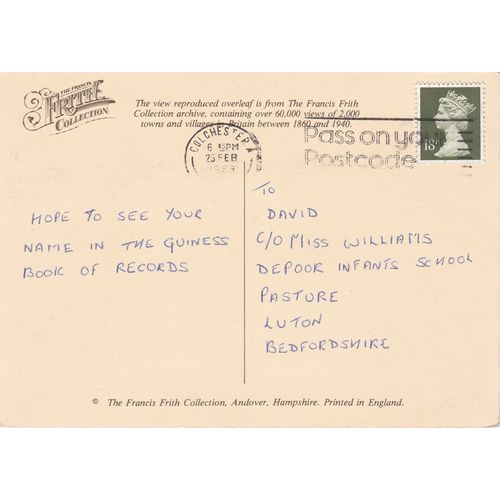 THE FRANCIS
FRITH
COLLECTION
The view reproduced overleaf is from The Francis Frith
Collection archive, containing over 60,000 views of 2,000
towns and villages in Britain between 1860 and 1940.
COLCHESTER A
6 PM
25 FEB
1988
Pass on your
Postcode
18P
HOPE TO SEE YOUR
NAME IN THE GUINESS
BOOK OF RECORDS
TO
DAVID
C/O MISS WILLIAMS
DEPOOR INFANTS SCHOOL
PASTURE
LUTON
BEDFORDSHIRE
© The Francis Frith Collection, Andover, Hampshire. Printed in England.